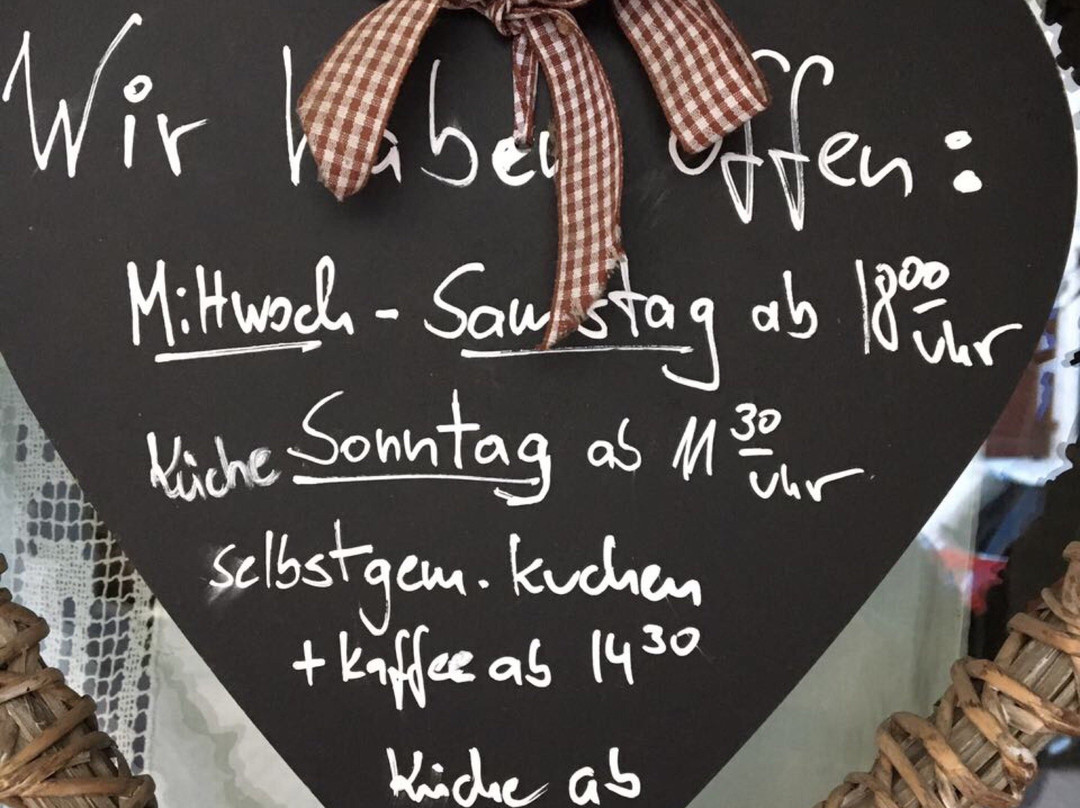 Wir haben offen:
Mittwoch - Samstag ab 18⁰⁰ Uhr
Küche Sonntag ab 11³⁰ Uhr
selbstgem. Kuchen
+ Kaffee ab 14³⁰
Küche ab